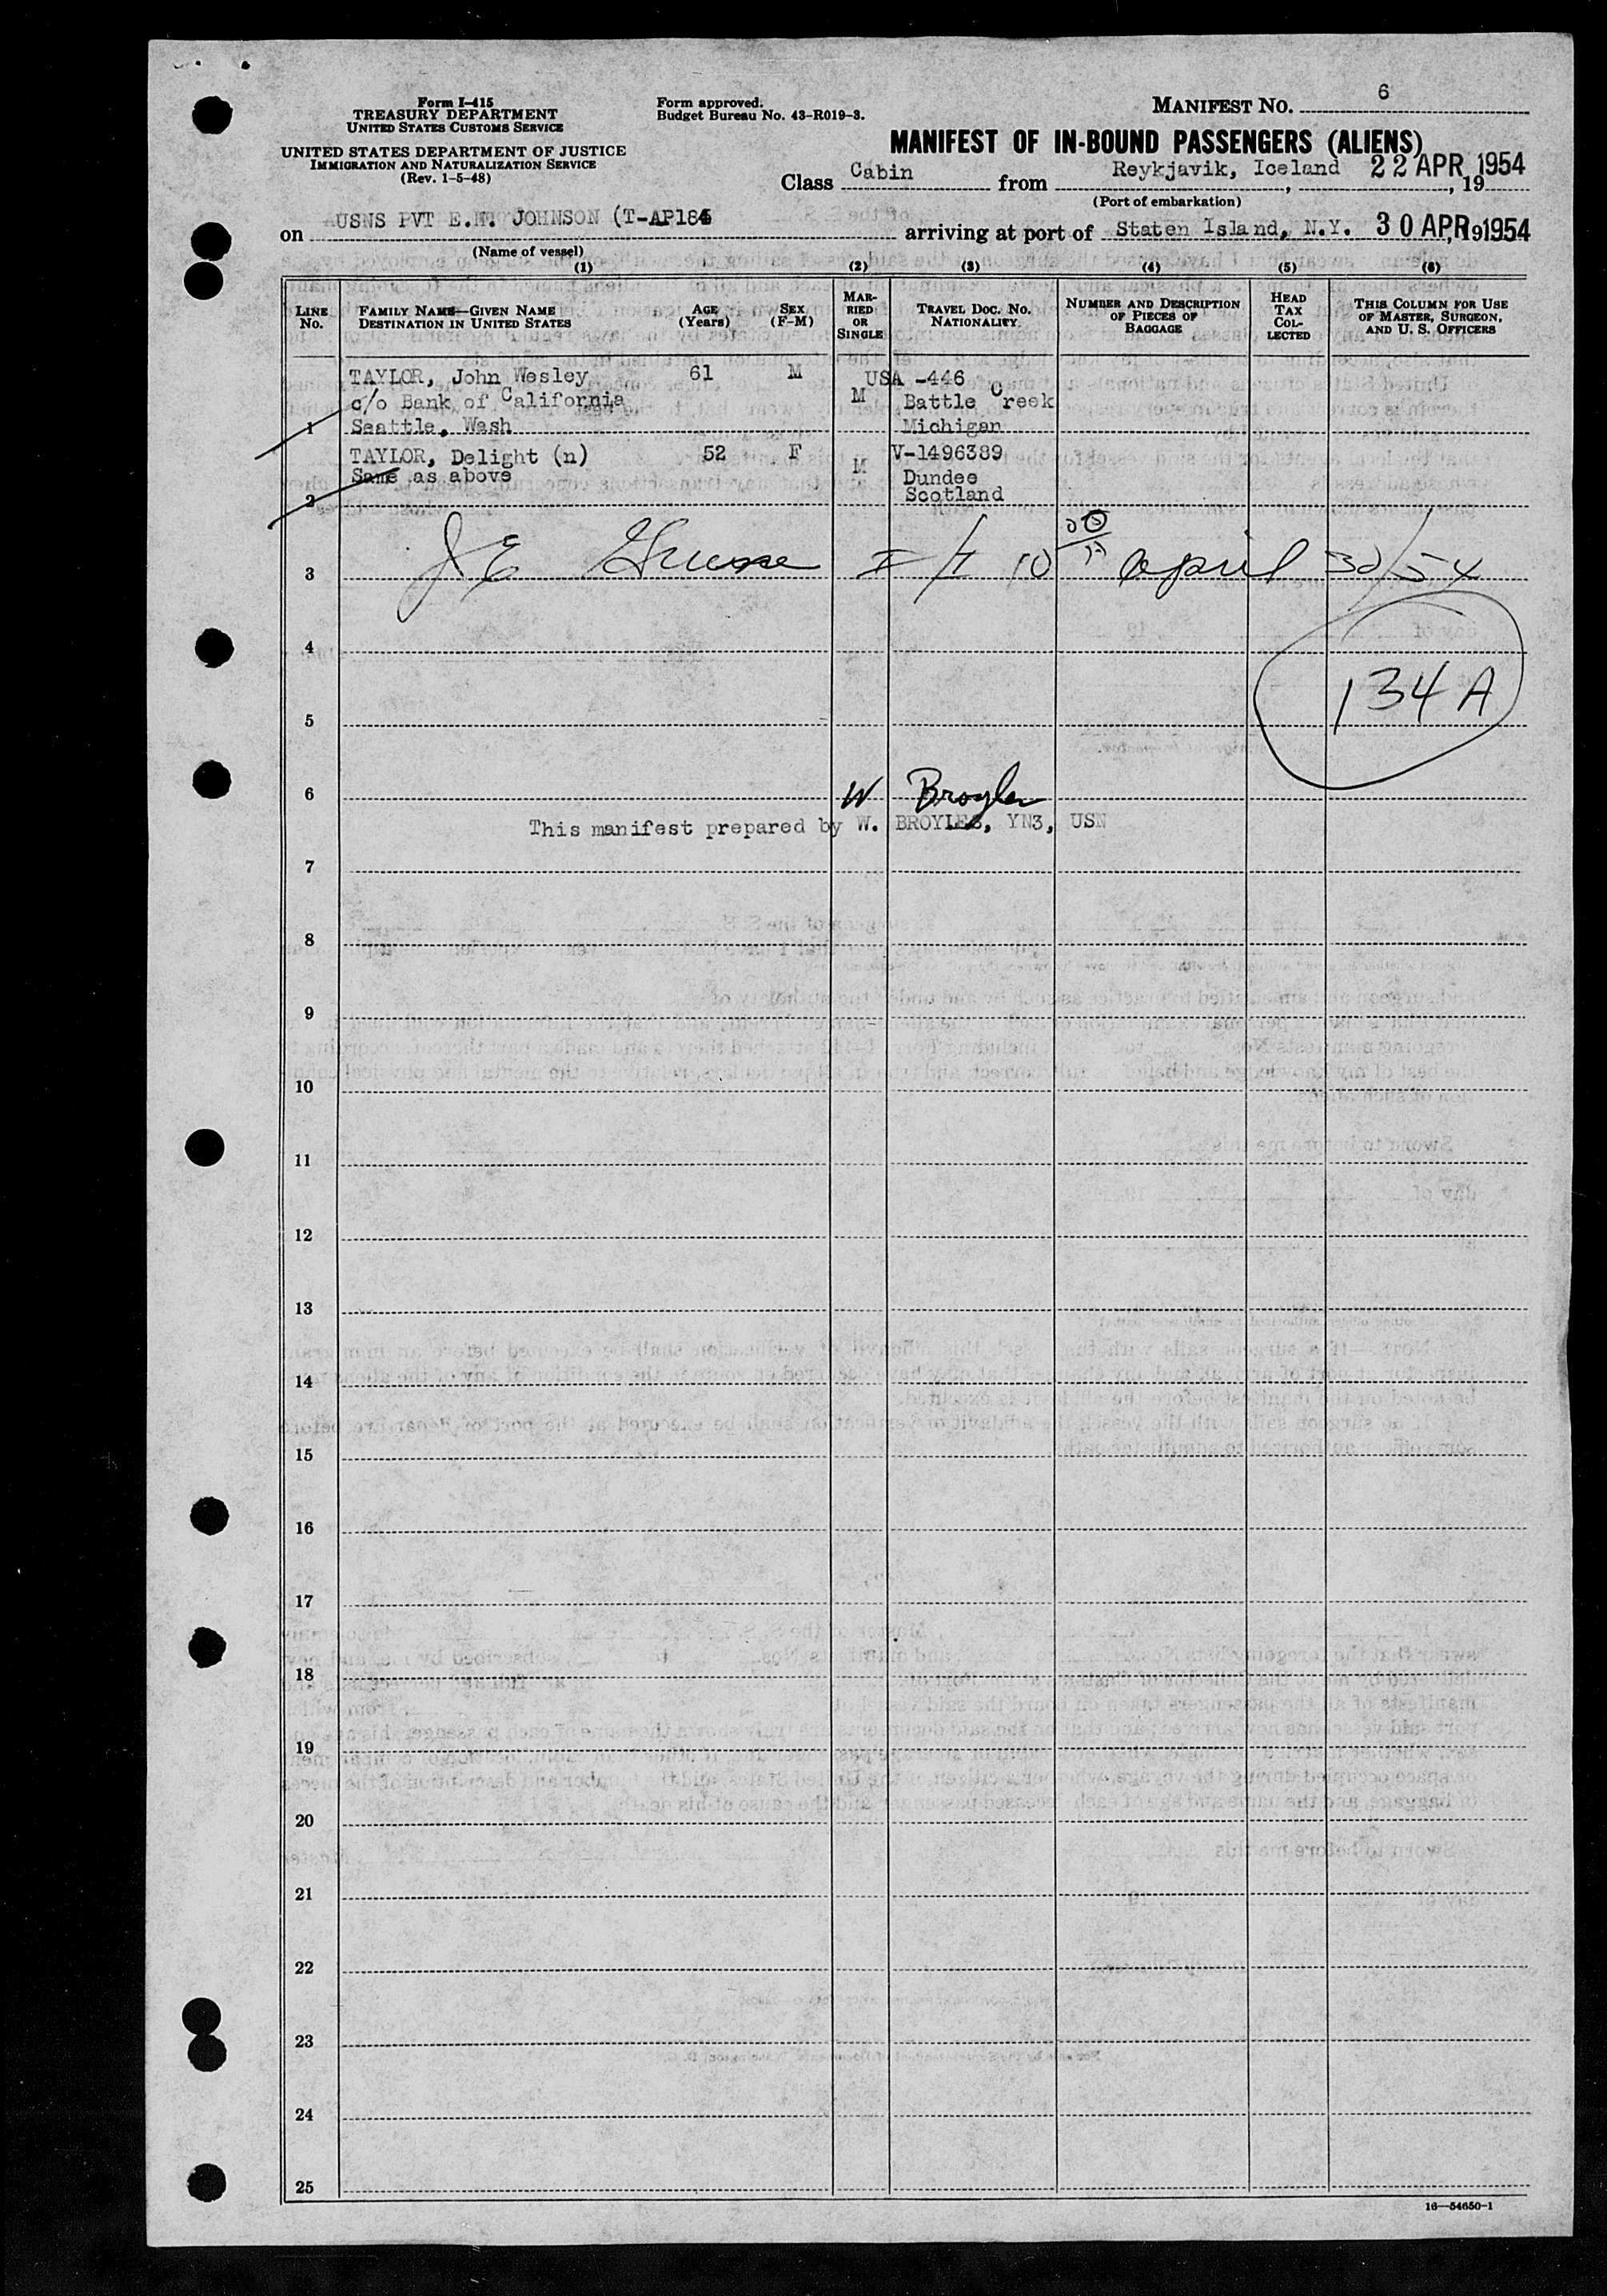 Form I-415
TREASURY DEPARTMENT
UNITED STATES CUSTOMS SERVICE
UNITED STATES DEPARTMENT OF JUSTICE
IMMIGRATION AND NATURALIZATION SERVICE
(Rev. 1-5-48)
Form approved.
Budget Bureau No. 43-R019-3.
MANIFEST NO. 6
MANIFEST OF IN-BOUND PASSENGERS (ALIENS)
Class Cabin from Reykjavik, Iceland 22 APR 1954, 19
(Port of embarkation)
on USNS PVT E.H. JOHNSON (T-AP184 arriving at port of Staten Island, N.Y. 30 APR 1954, 19
(Name of vessel)
(1) (2) (3) (4) (5) (6)
LINE No.
FAMILY NAME—GIVEN NAME
DESTINATION IN UNITED STATES
AGE (Years)
SEX (F-M)
MARRIED OR SINGLE
TRAVEL DOC. NO. NATIONALITY
NUMBER AND DESCRIPTION OF PIECES OF BAGGAGE
HEAD TAX COLLECTED
THIS COLUMN FOR USE OF MASTER, SURGEON, AND U. S. OFFICERS
TAYLOR, John Wesley 61 M USA -446
c/o Bank of California M Battle Creek
1 Seattle, Wash Michigan
TAYLOR, Delight (n) 52 F V-1496389
Same as above M Dundee
2 Scotland
3 J E April 30/54
4
134 A
5
6 W Broyles
This manifest prepared by W. BROYLES, YN3, USN
7
8
9
10
11
12
13
14
15
16
17
18
19
20
21
22
23
24
25
16—54650-1